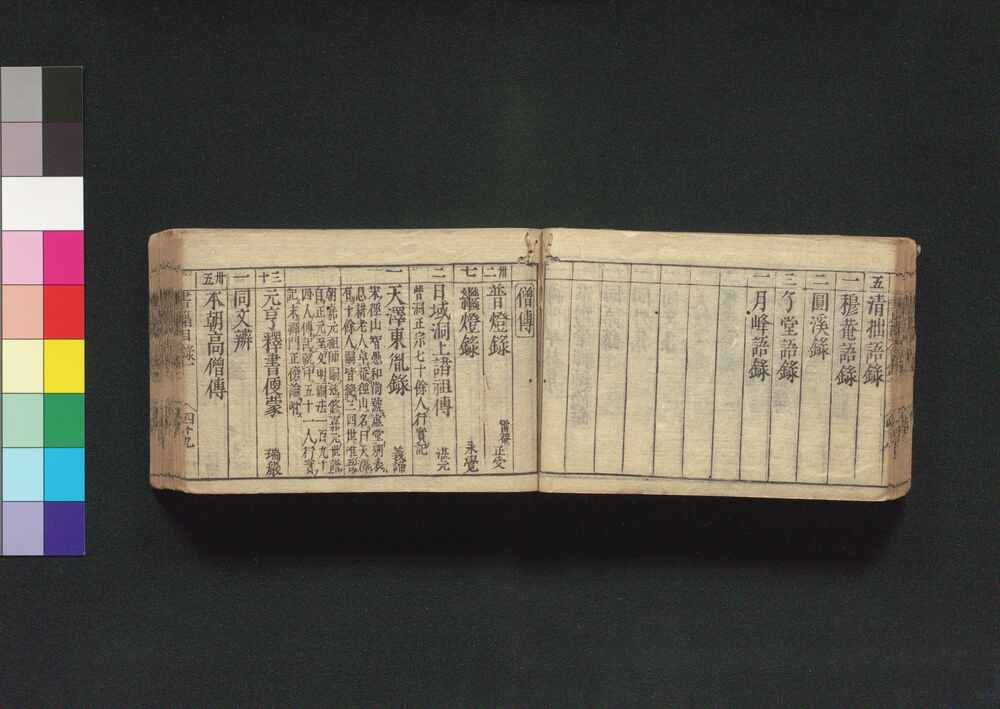 五 清拙語錄
一 穆菴語錄
二 圓溪錄
三 了堂語錄
一 月峰語錄
僧傳
卅二 普燈錄 雷菴正受
七 繼燈錄 永覺
二 日域洞上諸祖傳 湛元
曹洞正宗七十餘人行實記
一 天澤東胤錄 義諦
三十 元亨釋書便蒙 瑞巖
一 同文辨
卅五 本朝高僧傳
書籍目錄一 四十九